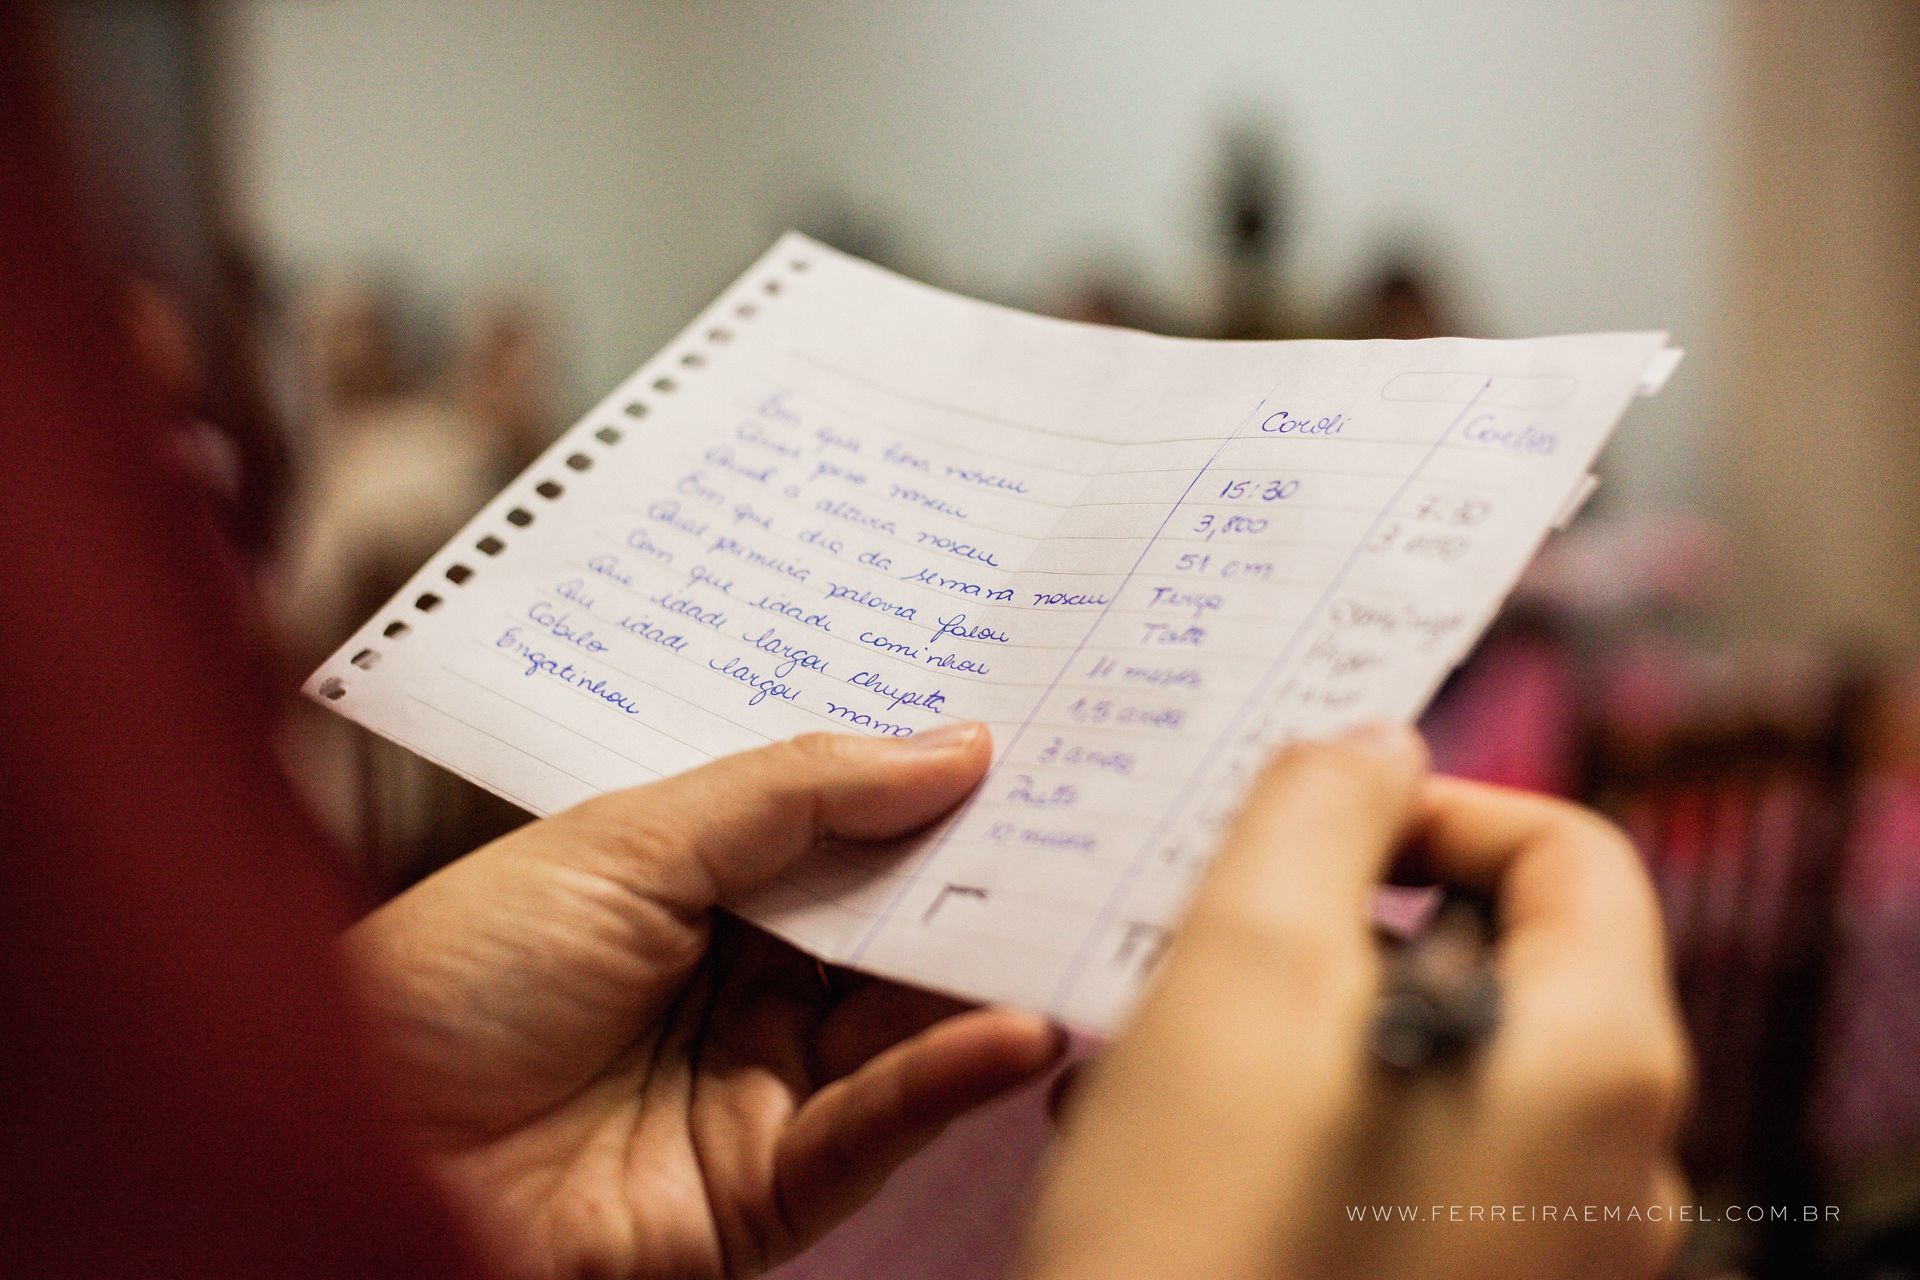 Coroli Carlos
Em que hora nasceu 15:30 7:30
Qual peso nasceu 3,800
Qual a altura nasceu 51 cm
Em que dia da semana nasceu Terça domingo
Qual primeira palavra falou
Com que idade caminhou 11 meses
Que idade largou chupeta 1,5 anos
Que idade largou mama 3 anos
Cabelo Preto
Engatinhou 10 meses
WWW.FERREIRAEMACIEL.COM.BR